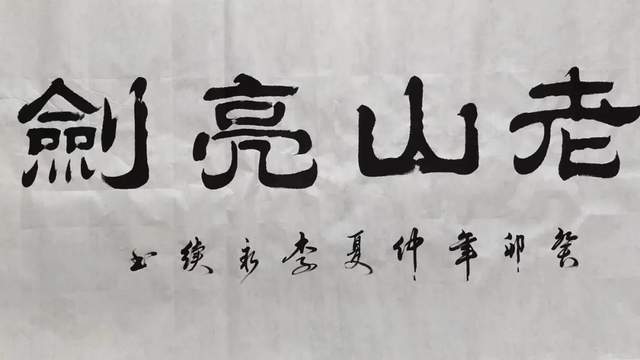 老山亮劍
癸卯年仲夏李永續书